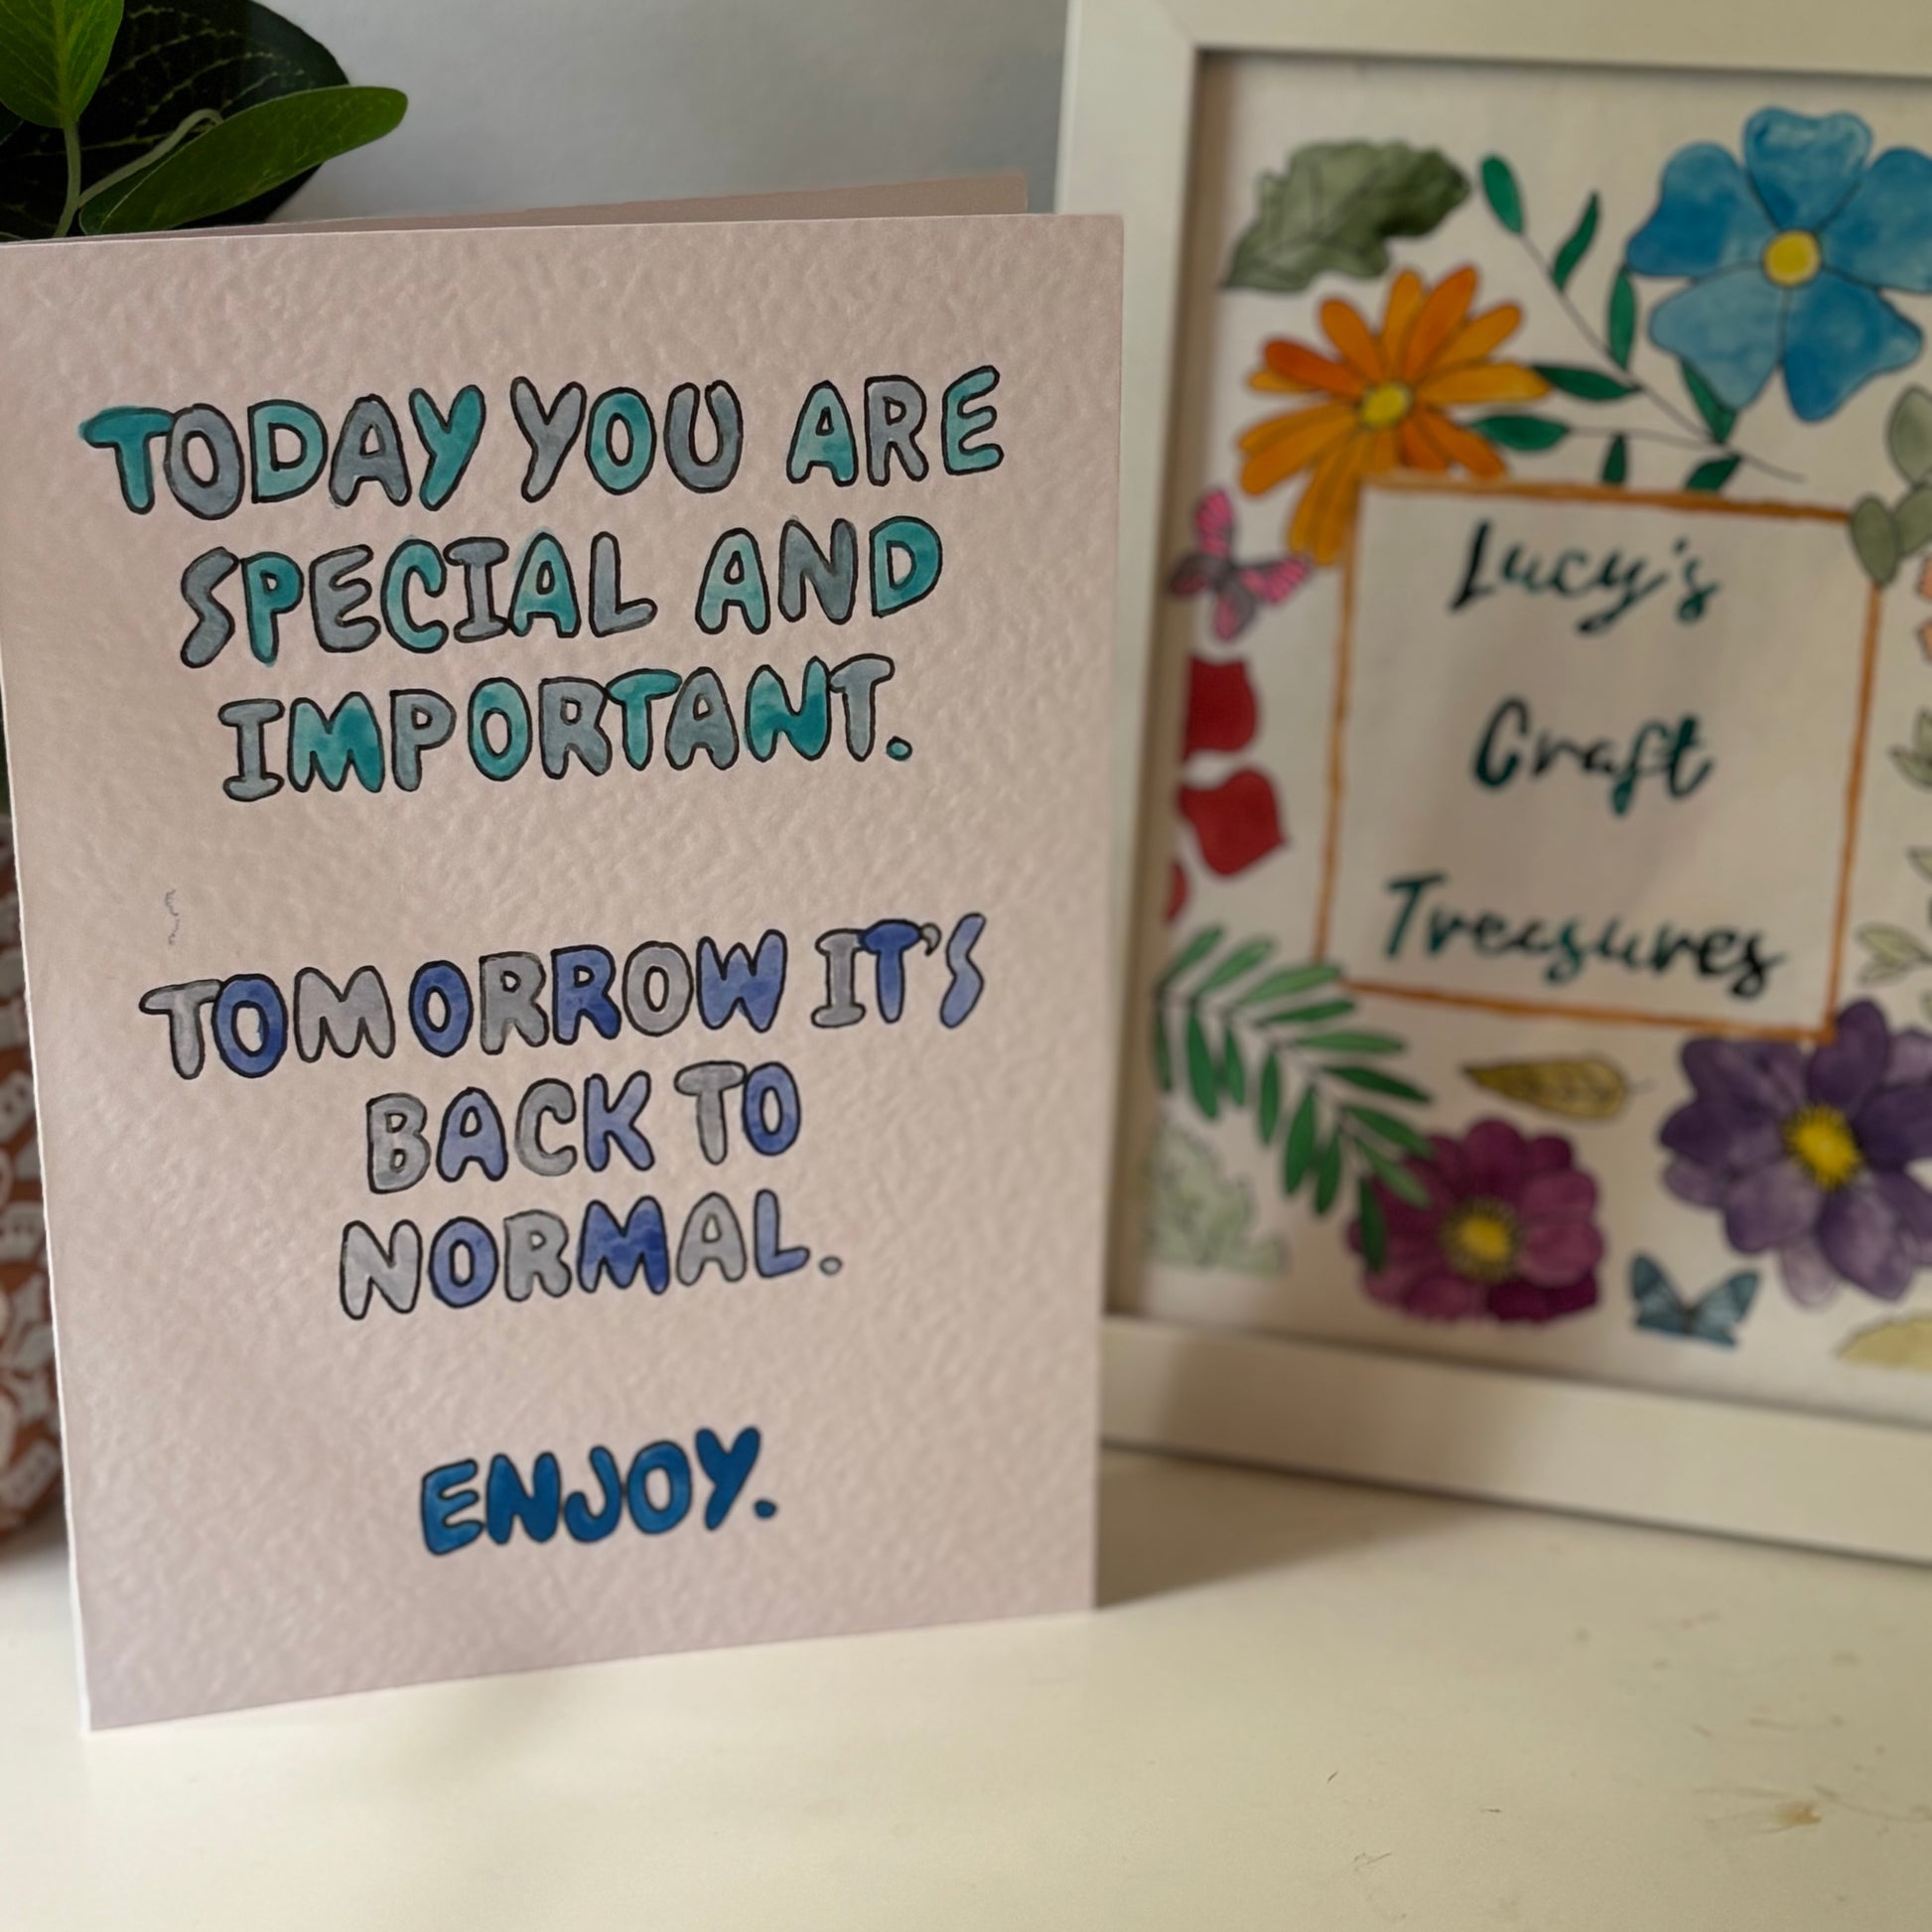 TODAY YOU ARE
SPECIAL AND
IMPORTANT.
TOMORROW IT'S
BACK TO
NORMAL.
ENJOY.
Lucy's
Craft
Treasures